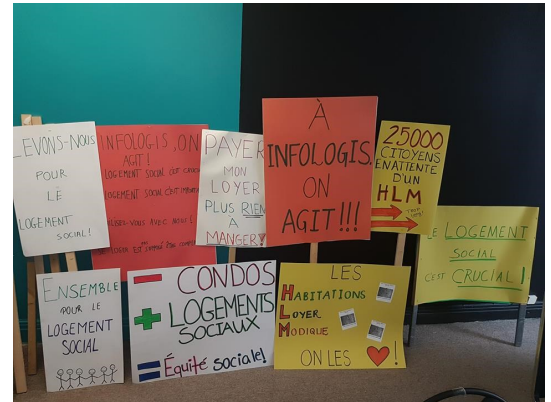 LEVONS-NOUS
POUR
LE
LOGEMENT
SOCIAL!
INFOLOGIS, ON
AGIT!
LOGEMENT SOCIAL C'EST
LOGEMENT SOCIAL C'EST
-VOUS AVEC NOUS!
PAYER
MON
LOYER
PLUS RIEN
À
MANGER!
À
INFOLOGIS,
ON
AGIT!!!
25000
CITOYENS
EN ATTENTE
D'UN
HLM
LE LOGEMENT
SOCIAL
C'EST CRUCIAL!
ENSEMBLE
POUR LE
LOGEMENT
SOCIAL
- CONDOS
+ LOGEMENTS
SOCIAUX
= Équité sociale!
LES
HABITATIONS
LOYER
MODIQUE
ON LES ❤!